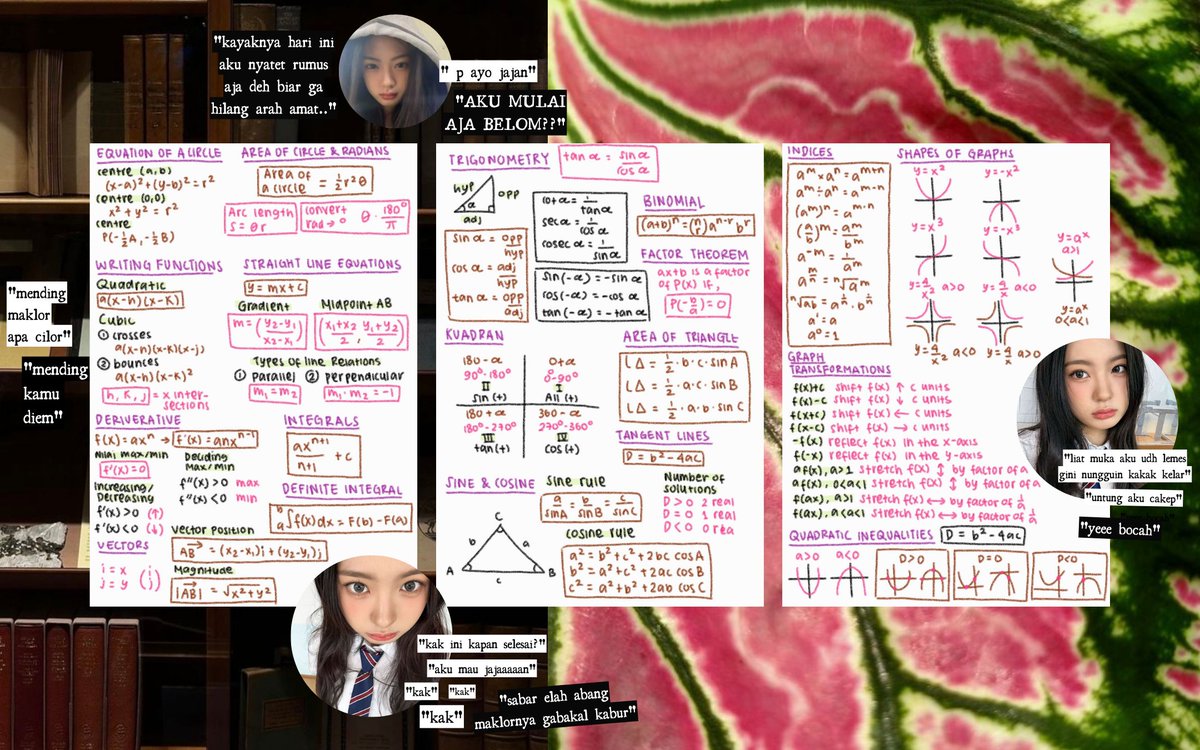 "kayaknya hari ini
aku nyatet rumus
aja deh biar ga
hilang arah amat.."
" p ayo jajan"
"AKU MULAI
AJA BELOM??"
"mending
maklor
apa cilor"
"mending
kamu
diem"
EQUATION OF A CIRCLE
centre (a,b)
(x-a)²+(y-b)²=r²
centre (0,0)
x² + y² = r²
centre
P(-½A, -½B)
AREA OF CIRCLE & RADIANS
Area of
a circle = ½r²θ
Arc length
s = θr
convert
rad → ° θ · 180°/π
WRITING FUNCTIONS
Quadratic
a(x-h)(x-k)
Cubic
① crosses
a(x-h)(x-k)(x-j)
② bounces
a(x-h)(x-k)²
h, k, j = x inter-
sections
STRAIGHT LINE EQUATIONS
y = mx + c
Gradient
m = (y₂-y₁/x₂-x₁)
Midpoint AB
(x₁+x₂/2, y₁+y₂/2)
Types of line Relations
① parallel ② perpendicular
m₁ = m₂
m₁ · m₂ = -1
DERIVERATIVE
f(x) = axⁿ → f'(x) = anxⁿ⁻¹
Nilai max/min
f'(x) = 0
Deciding
Max/min
f''(x) > 0 max
f''(x) < 0 min
Increasing/
Decreasing
f'(x) > 0 (↑)
f'(x) < 0 (↓)
INTEGRALS
axⁿ⁺¹/n+1 + c
DEFINITE INTEGRAL
b
a∫f(x)dx = F(b) - F(a)
VECTORS
i = x
j = y (i j)
Vector Position
AB = (x₂-x₁)i + (y₂-y₁)j
Magnitude
|AB| = √x²+y²
TRIGONOMETRY
tan α = sin α/cos α
hyp
opp
α
adj
sin α = opp/hyp
cos α = adj/hyp
tan α = opp/adj
cot α = 1/tan α
sec α = 1/cos α
cosec α = 1/sin α
sin(-α) = -sin α
cos(-α) = -cos α
tan(-α) = -tan α
BINOMIAL
(a+b)ⁿ = (n r) aⁿ⁻ʳ bʳ
FACTOR THEOREM
ax+b is a factor
of P(x) if,
P(-b/a) = 0
KUADRAN
180-α
90°-180°
II
sin (+)
0+α
0-90°
I
All (+)
180+α
180°-270°
III
tan (+)
360-α
270°-360°
IV
cos (+)
AREA OF TRIANGLE
L△ = ½ · b · c · sin A
L△ = ½ · a · c · sin B
L△ = ½ · a · b · sin C
TANGENT LINES
D = b² - 4ac
Number of
solutions
D > 0 2 real
D = 0 1 real
D < 0 0 rea
SINE & COSINE
C
b
a
A
c
B
Sine rule
a/sinA = b/sinB = c/sinC
cosine rule
a² = b² + c² + 2bc cos A
b² = a² + c² + 2ac cos B
c² = a² + b² + 2ab cos C
INDICES
aᵐ × aⁿ = aᵐ⁺ⁿ
aᵐ ÷ aⁿ = aᵐ⁻ⁿ
(aᵐ)ⁿ = aᵐ⁻ⁿ
(a/b)ᵐ = aᵐ/bᵐ
a⁻ᵐ = 1/aᵐ
a^m/n = ⁿ√aᵐ
ⁿ√ab = a^1/n · b^1/n
a¹ = a
a⁰ = 1
SHAPES OF GRAPHS
y = x²
y = -x²
y = x³
y = -x³
y = aˣ
a>1
y = a/x² a>0
y = a/x a<0
y = aˣ
0<a<1
y = a/x² a<0
y = a/x a>0
GRAPH
TRANSFORMATIONS
f(x)+c shift f(x) ↑ c units
f(x)-c shift f(x) ↓ c units
f(x+c) shift f(x) ← c units
f(x-c) shift f(x) → c units
-f(x) reflect f(x) in the x-axis
f(-x) reflect f(x) in the y-axis
af(x), a>1 stretch f(x) ↕ by factor of a
af(x), 0<a<1 stretch f(x) ↕ by factor of
f(ax), a>1 stretch f(x) ↔ by factor of 1/a
f(ax), a<a<1 stretch f(x) ↔ by factor of 1/a
QUADRATIC INEQUALITIES
D = b² - 4ac
a>0
a<0
D>0
D=0
D<0
"liat muka aku udh lemes
gini nungguin kakak kelar"
"untung aku cakep"
"yeee bocah"
"kak ini kapan selesai?"
"aku mau jajaaaaan"
"kak" "kak"
"kak"
"sabar elah abang
maklornya gabakal kabur"